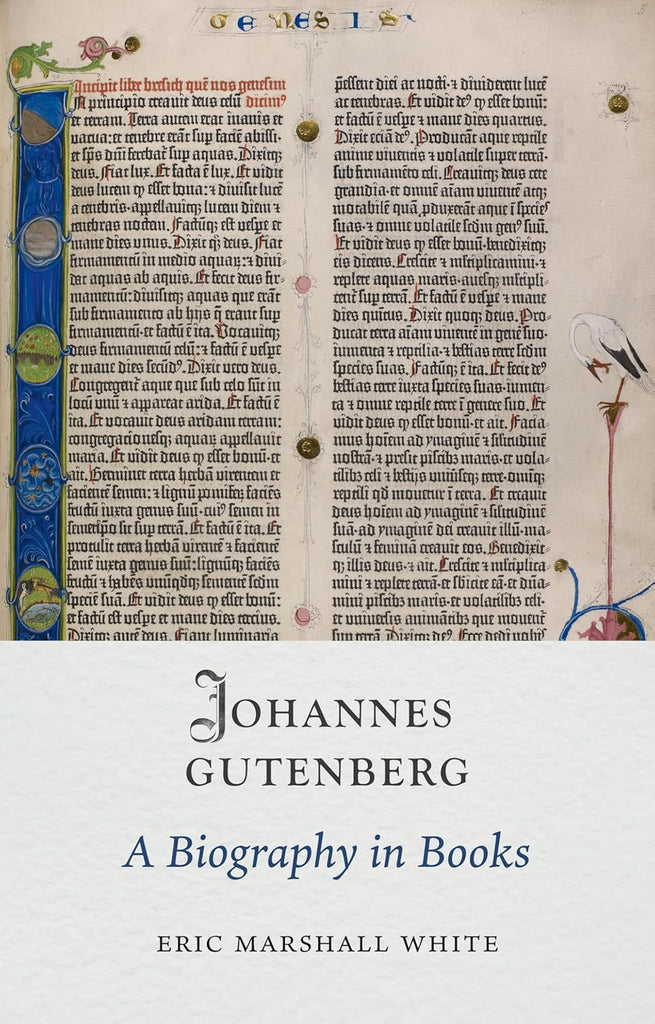 GENESIS
Incipit liber bresith quē nos genesim
In principio creavit deus celū dicimꝰ
et terram. Terra autem erat inanis et
vacua: et tenebre erāt sup faciē abissi.
et sp̄s dn̄i ferebat͛ sup aquas. Dixitqꝫ
deus. Fiat lux. Et facta ē lux. Et vidit
deus lucem ꝙ esset bona: ⁊ divisit lucē
a tenebris·appellavitqꝫ lucem diem ⁊
tenebras noctem. Factūqꝫ est vespe et
mane dies vnus. Dixit qꝫ deus. Fiat
firmamentū in medio aquaꝝ: ⁊ divi-
dat aquas ab aquis. Et fecit deus fir-
mamentū: divisitqꝫ aquas que erāt
sub firmamento ab hijs q̄ erant sup
firmamentū·et factū ē ita. Vocavitqꝫ
deus firmamentū celū: ⁊ factū ē vespe
et mane dies secūdꝰ. Dixit vero deus.
Congregent͛ aque que sub celo sūt in
locū vnū ⁊ appareat arida. Et factū ē
ita. Et vocavit deus aridam terram:
congregacionesqꝫ aquaꝝ appellavit
maria. Et vidit deus ꝙ esset bonū·et
ait. Germinet terra herbā virentem et
facientē semen: ⁊ lignū pomifeꝝ faciēs
fructū iuxta genus suū·cuiꝰ semen in
semetip̄o sit sup terrā. Et factū ē ita. Et
protulit terra herbā virentē ⁊ facientē
semē iuxta genus suū: lignūqꝫ faciēs
fructū ⁊ habēs vnūqdqꝫ sementē scdm
speciē suā. Et vidit deus ꝙ esset bonū:
et factū est vespe et mane dies tercius.
Dixitqꝫ aut̄ deus. Fiant luminaria
p̄essent diei ac nocti·⁊ dividerent lucē
ac tenebras. Et vidit deꝰ ꝙ esset bonū:
et factū ē vespe ⁊ mane dies quartus.
Dixit eciā deꝰ. Producāt aque reptile
anime viventis ⁊ volatile super terrā·
sub firmamēto celi. Creavitqꝫ deus cete
grandia·et omnē aīam viventē atqꝫ
motabilē quā ꝓduxerāt aque ī sp̄cies
suas·⁊ omne volatile scdm genꝰ suū.
Et vidit deus ꝙ esset bonū·benedixitqꝫ
eis dicens. Crescite ⁊ m̄ltiplicamini·⁊
replete aquas maris·avesqꝫ m̄ltipli-
cent͛ sup terrā. Et factū ē vespe ⁊ mane
dies quītus. Dixit quoqꝫ deus. Pro-
ducat terra aīam viventē in genē suo·
iumenta ⁊ reptilia·⁊ bestias terre scdm
species suas. Factūqꝫ ē ita. Et fecit deꝰ
bestias terre iuxta species suas·iumen-
ta ⁊ omne reptile terre ī genere suo. Et
vidit deus ꝙ esset bonū·et ait. Facia-
mus hoīem ad ymaginē ⁊ silitudinē
nostrā·⁊ presit piscibꝫ maris·et vola-
tilibꝫ celi ⁊ bestijs vniversęqꝫ terre·omniqꝫ
reptili qd movetur ī terra. Et creavit
deus hoīem ad ymaginē ⁊ silitudinē
suā·ad ymaginē dei creavit illū·ma-
sculū ⁊ feminā creavit eos. Benedixit-
qꝫ illis deus·⁊ ait. Crescite ⁊ m̄ltiplica-
mini ⁊ replete terrā·et sbicite eā·et dn̄a-
mini piscibꝫ maris·et volatilibꝫ celi·
et vniversis animātibꝫ que movent͛
sup terrā. Dixitqꝫ deꝰ. Ecce dedi vobis
JOHANNES
GUTENBERG
A Biography in Books
ERIC MARSHALL WHITE